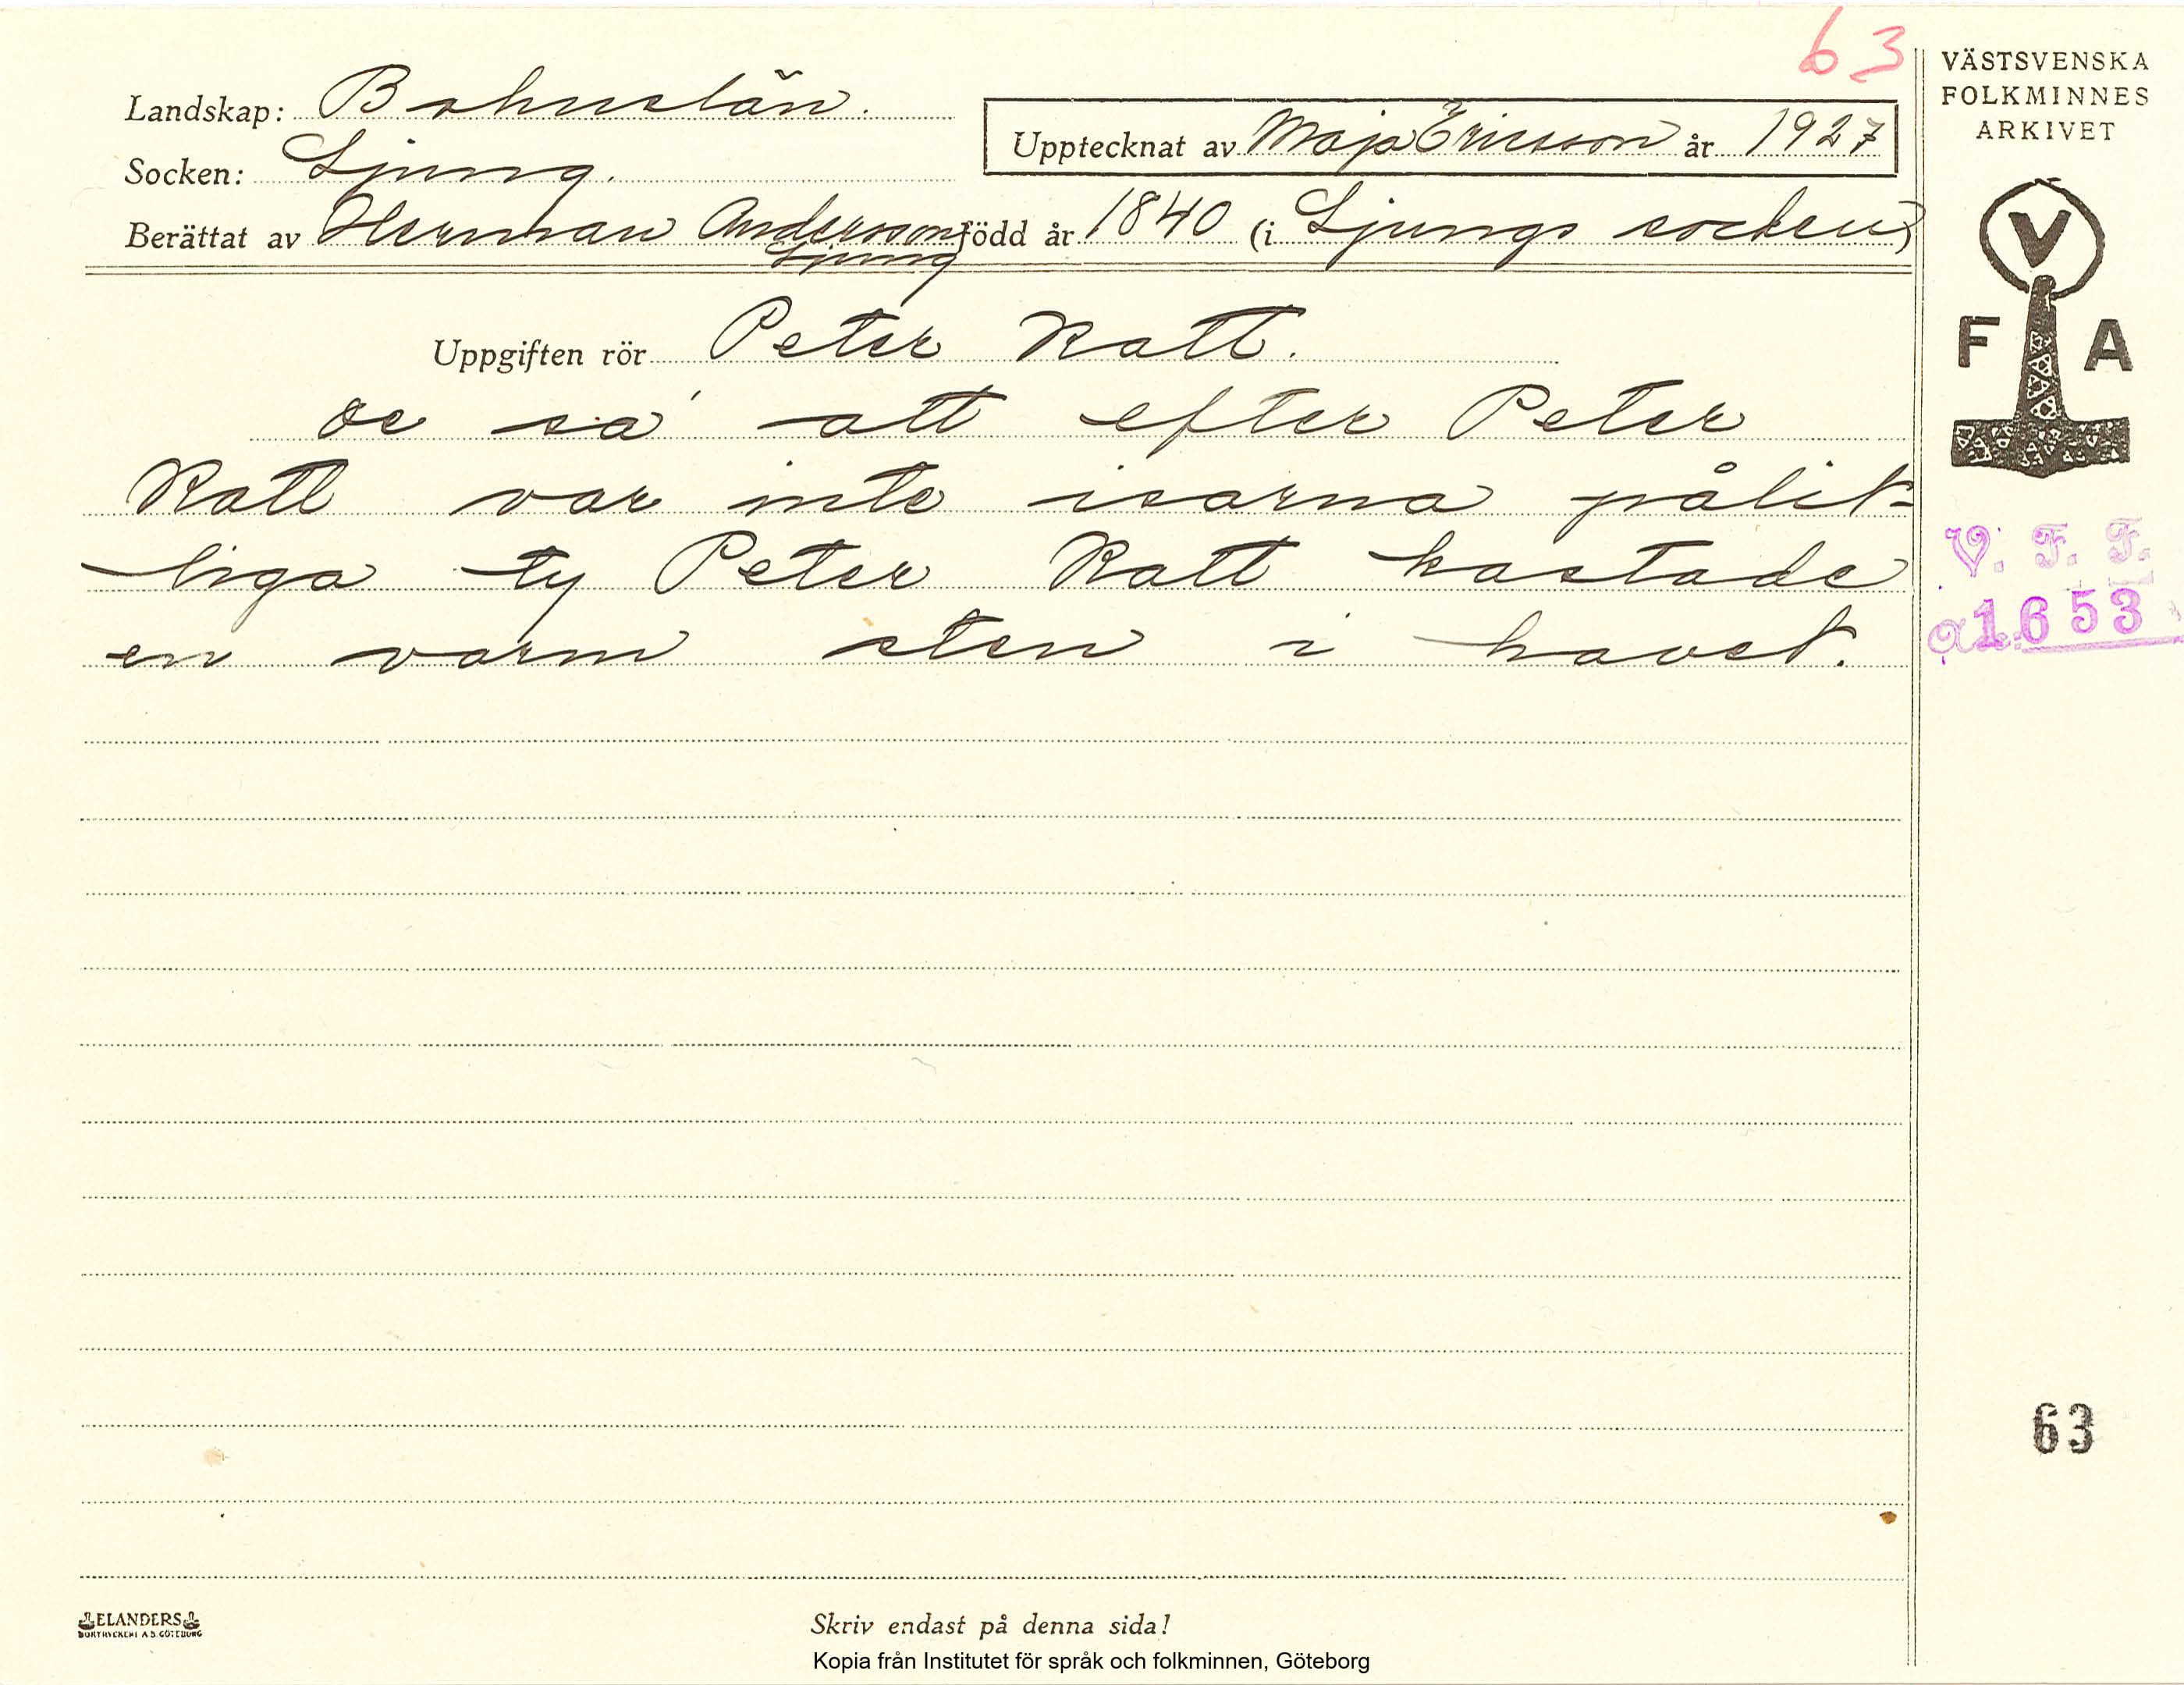 63
VÄSTSVENSKA
FOLKMINNES
ARKIVET
Landskap: Bohuslän.
Upptecknat av Maja Ericsson år 1927
Socken: Ljung.
Berättat av Herman Andersson född år 1840 (i Ljungs socken)
Ljung
V
F A
Uppgiften rör Peter Katt.
De sa' att efter Peter
Katt var inte isarna pålit-
liga ty Peter Katt kastade
en varm sten i havet.
V. F. F.
1653
63
ELANDERS
BOKTRYCKERI A.B. GÖTEBORG
Skriv endast på denna sida!
Kopia från Institutet för språk och folkminnen, Göteborg